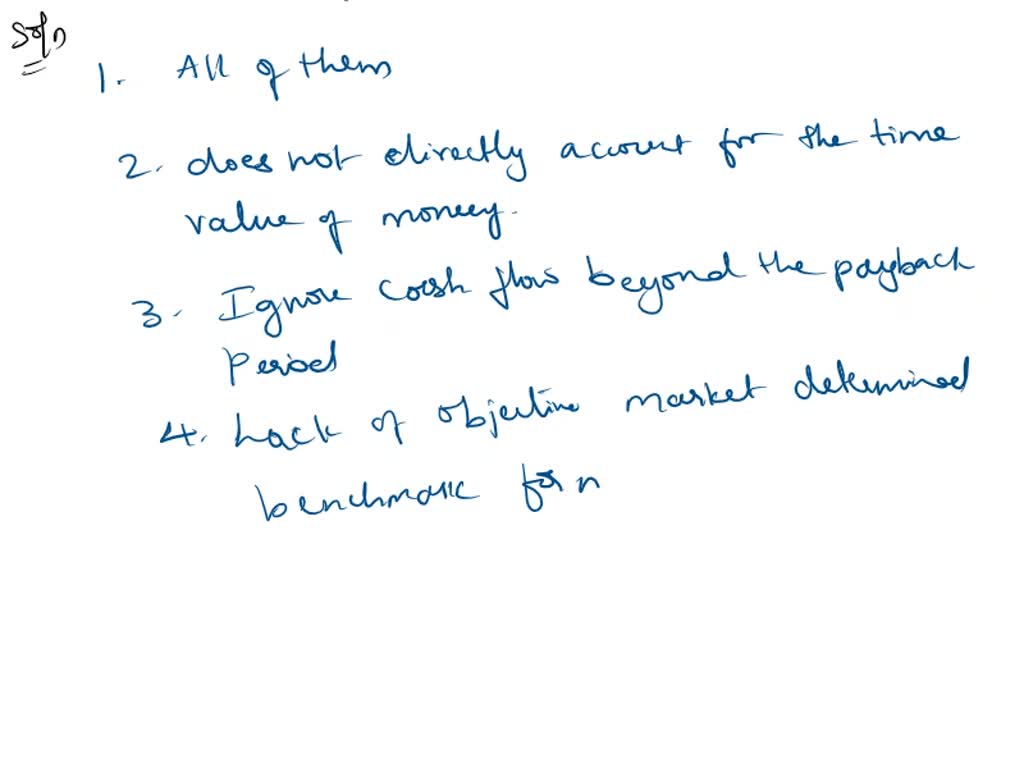 Soln
1. All of them
2. does not directly account for the time
value of money.
3. Ignore cash flows beyond the payback
period
4. Lack of objective market determined
benchmark for n